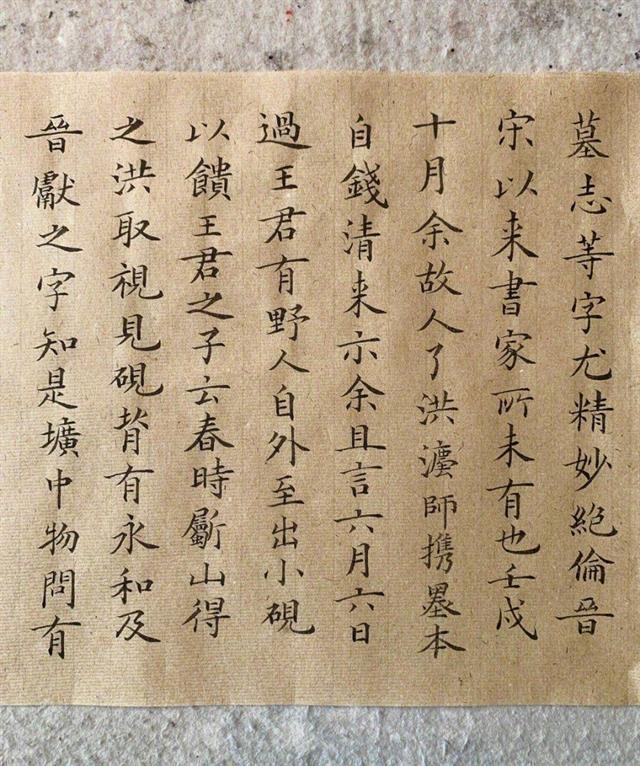 墓志等字尤精妙絕倫晉
宋以来書家所未有也壬戌
十月余故人了洪灋師携墨本
自錢清来示余且言六月六日
過王君有野人自外至出小硯
以饋王君之子云春時斸山得
之洪取視見硯背有永和及
晉獻之字知是壙中物問有